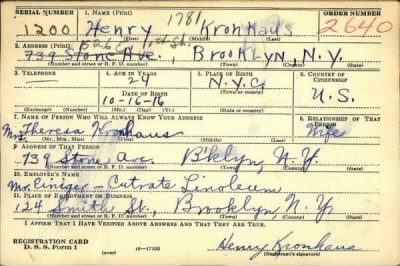 SERIAL NUMBER 1. NAME (Print) ORDER NUMBER
1200 Henry 1781 Kronhaus 2640
(First) (Middle) (Last)
2. ADDRESS (Print) 11th St.
739 Stone Ave., Brooklyn, N.Y.
(Number and street or R. F. D. number) (Town) (County) (State)
3. TELEPHONE 4. AGE IN YEARS 5. PLACE OF BIRTH 6. COUNTRY OF CITIZENSHIP
24 N.Y.C.
DATE OF BIRTH
10-16-16 U.S.
(Exchange) (Number) (Mo.) (Day) (Yr.) (State or country)
7. NAME OF PERSON WHO WILL ALWAYS KNOW YOUR ADDRESS 8. RELATIONSHIP OF THAT PERSON
Mrs. Theresa Kronhaus Wife
(Mr., Mrs., Miss) (First) (Middle) (Last)
9. ADDRESS OF THAT PERSON
739 Stone Ave. B'klyn, N.Y.
(Number and street or R. F. D. number) (Town) (County) (State)
10. EMPLOYER'S NAME
Mr. Einiger - Cutrate Linoleum
11. PLACE OF EMPLOYMENT OR BUSINESS
124 Smith St., Brooklyn, N.Y.
(Number and street or R. F. D. number) (Town) (County) (State)
I AFFIRM THAT I HAVE VERIFIED ABOVE ANSWERS AND THAT THEY ARE TRUE.
REGISTRATION CARD
D. S. S. Form 1 (over) 16-17105 Henry Kronhaus
(Registrant's signature)